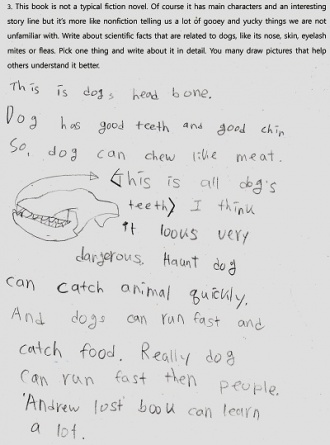 3. This book is not a typical fiction novel. Of course it has main characters and an interesting
story line but it's more like nonfiction telling us a lot of gooey and yucky things we are not
unfamiliar with. Write about scientific facts that are related to dogs, like its nose, skin, eyelash
mites or fleas. Pick one thing and write about it in detail. You many draw pictures that help
others understand it better.
This is dogs head bone.
Dog has good teeth and good chin
So, dog can chew like meat.
<This is all dog's
teeth> I think
it looks very
dangerous. Haunt dog
can catch animal quickly.
And dogs can run fast and
catch food. Really dog
can run fast then people.
'Andrew lost book can learn
a lot.